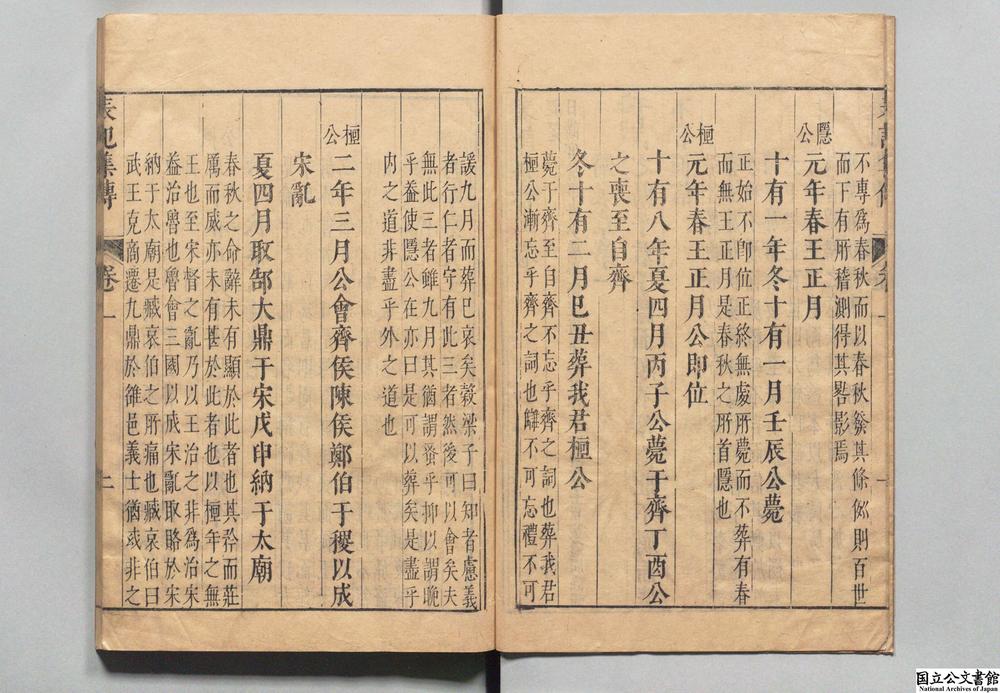 不專爲春秋而以春秋發其條例則百世
而下有所稽測得其畧影焉
隱公
元年春王正月
十有一年冬十有一月壬辰公薨
正始不卽位正終無處所薨而不葬有春
而無王正月是春秋之所首隱也
桓公
元年春王正月公卽位
十有八年夏四月丙子公薨于齊丁酉公
之喪至自齊
冬十有二月己丑葬我君桓公
薨于齊至自齊不忘乎齊之詞也葬我君
桓公漸忘乎齊之詞也讎不可忘禮不可
諼九月而葬已哀矣穀梁子曰知者慮義
者行仁者守有此三者然後可以會矣夫
無此三者雖九月其猶謂蚤乎抑以謂晚
乎盎使隱公在亦曰是可以葬矣是盡乎
內之道非盡乎外之道也
桓公
二年三月公會齊侯陳侯鄭伯于稷以成
宋亂
夏四月取郜大鼎于宋戊申納于太廟
春秋之命辭未有顯於此者也其矜而莊
厲而威亦未有甚於此者也以桓年之無
王也至宋督之亂乃以王治之非爲治宋
益治魯也魯會三國以成宋亂取賂於宋
納于太廟是臧哀伯之所痛也臧哀伯曰
武王克商遷九鼎於雒邑義士猶或非之
表記集傳
卷一
二
国立公文書館
National Archives of Japan